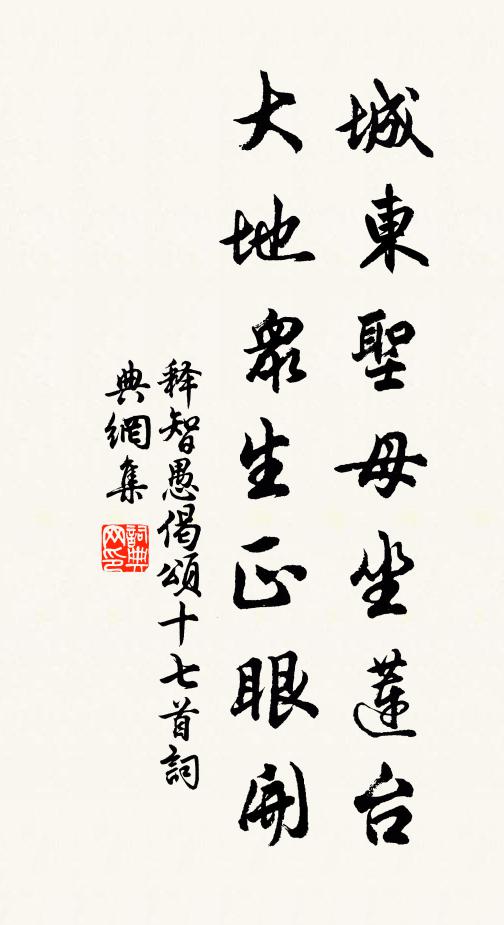 城東聖母坐蓮台
大地眾生正眼開
释智愚偈頌十七首詞
典網集
詞典
网印